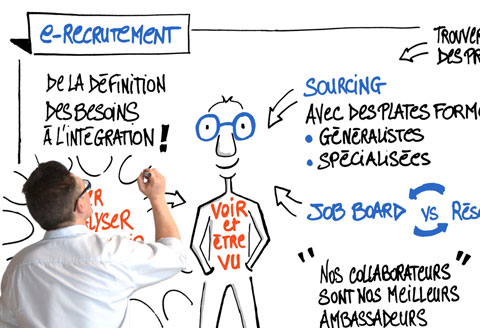 e-RECRUTEMENT
DE LA DÉFINITION
DES BESOINS
À L'INTÉGRATION !
TROUVER
DES PR
SOURCING
AVEC DES PLATES FORM
• GÉNÉRALISTES
• SPÉCIALISÉES
LYSER
VOIR
et
ÊTRE
VU
JOB BOARD VS RÉS
" NOS COLLABORATEURS "
SONT NOS MEILLEURS
AMBASSADEURS